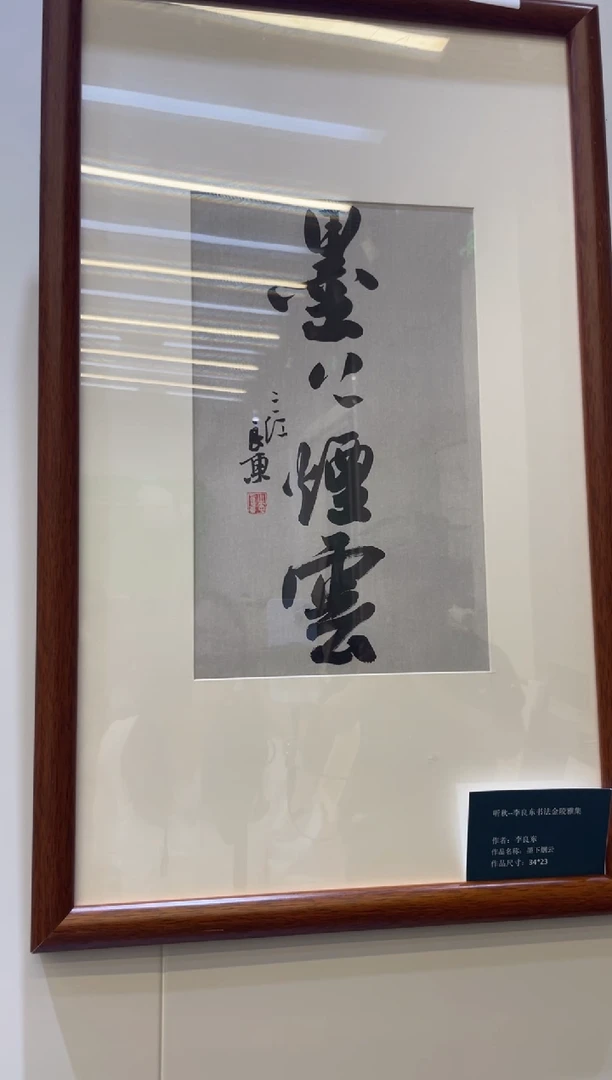 墨下煙雲
三江
良東
听秋--李良东书法金陵雅集
作者：李良东
作品名称：墨下烟云
作品尺寸：34*23